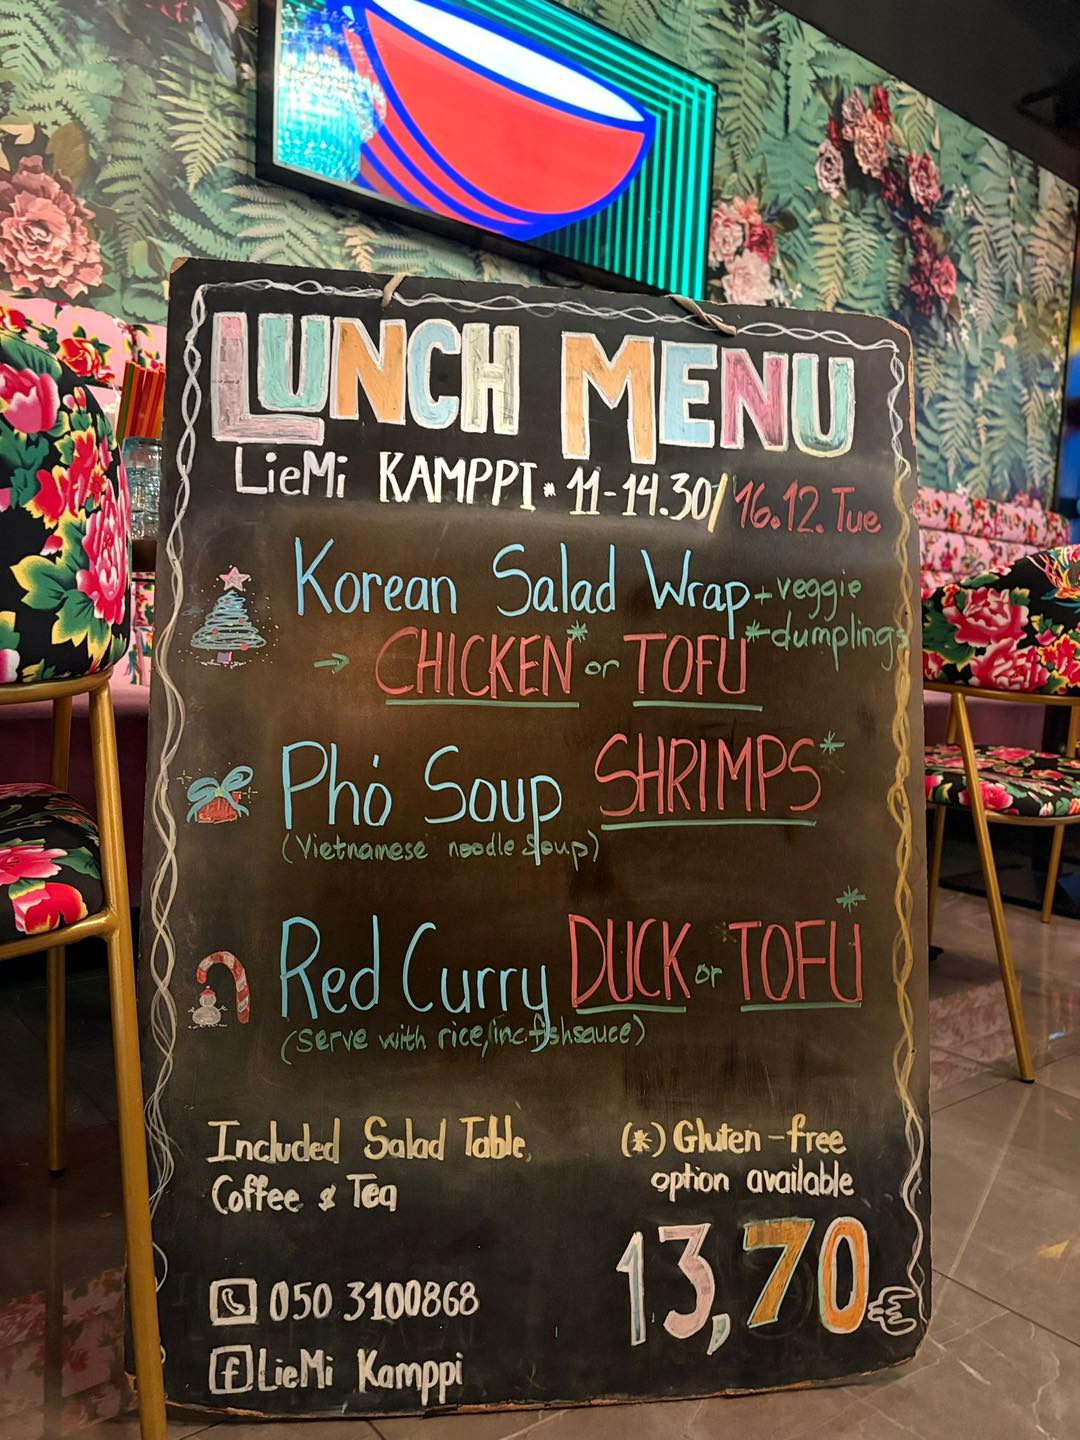 LUNCH MENU
LieMi KAMPPI * 11-14.30/ 16.12. Tue
Korean Salad Wrap + veggie
* dumplings
→ CHICKEN* or TOFU
Phở Soup SHRIMPS*
(Vietnamese noodle soup)
Red Curry DUCK or TOFU*
(serve with rice, inc fishsauce)
Included Salad Table,
Coffee & Tea
(*) Gluten-free
option available
13,70 €
050 3100868
f LieMi Kamppi